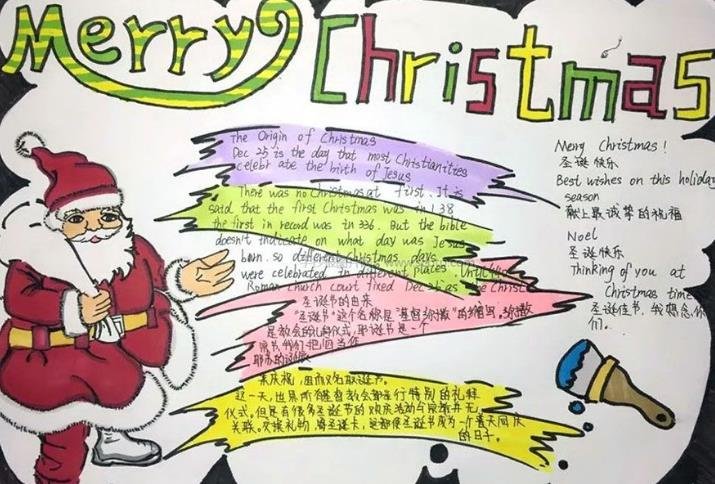 Merry Christmas
The Origin of Christmas
Dec 25 is the day that most Christianities
celebr ate the birth of Jesus
There was no Christmas at First. It is
said that the first Christmas was in 138
the first in record was in 336. But the bible
doesn't indicate on what day was Jesus
born. so different Christmas days
were celebrated in different plates. Until
Roman church court fixed Dec 25 as the Christ
圣诞节的由来
"圣诞节"这个名称是"基督弥撒"的缩写。弥撒
是教会的礼拜仪式。耶诞节是一个
宗教节我们把它当作
耶苏的诞辰
来庆祝，因而又名耶诞节。
这一天，世界所有基督教会都举行特别的礼拜
仪式。但是有很多圣诞节的欢庆活动与宗教并无
关联。交换礼物，寄圣诞卡，这都使圣诞节成为一个普天同庆
的日子。
Merry Christmas!
圣诞快乐
Best wishes on this holiday
season
献上最诚挚的祝福
Noel
圣诞快乐
Thinking of you at
Christmas time
圣诞佳节，我想念你
们。